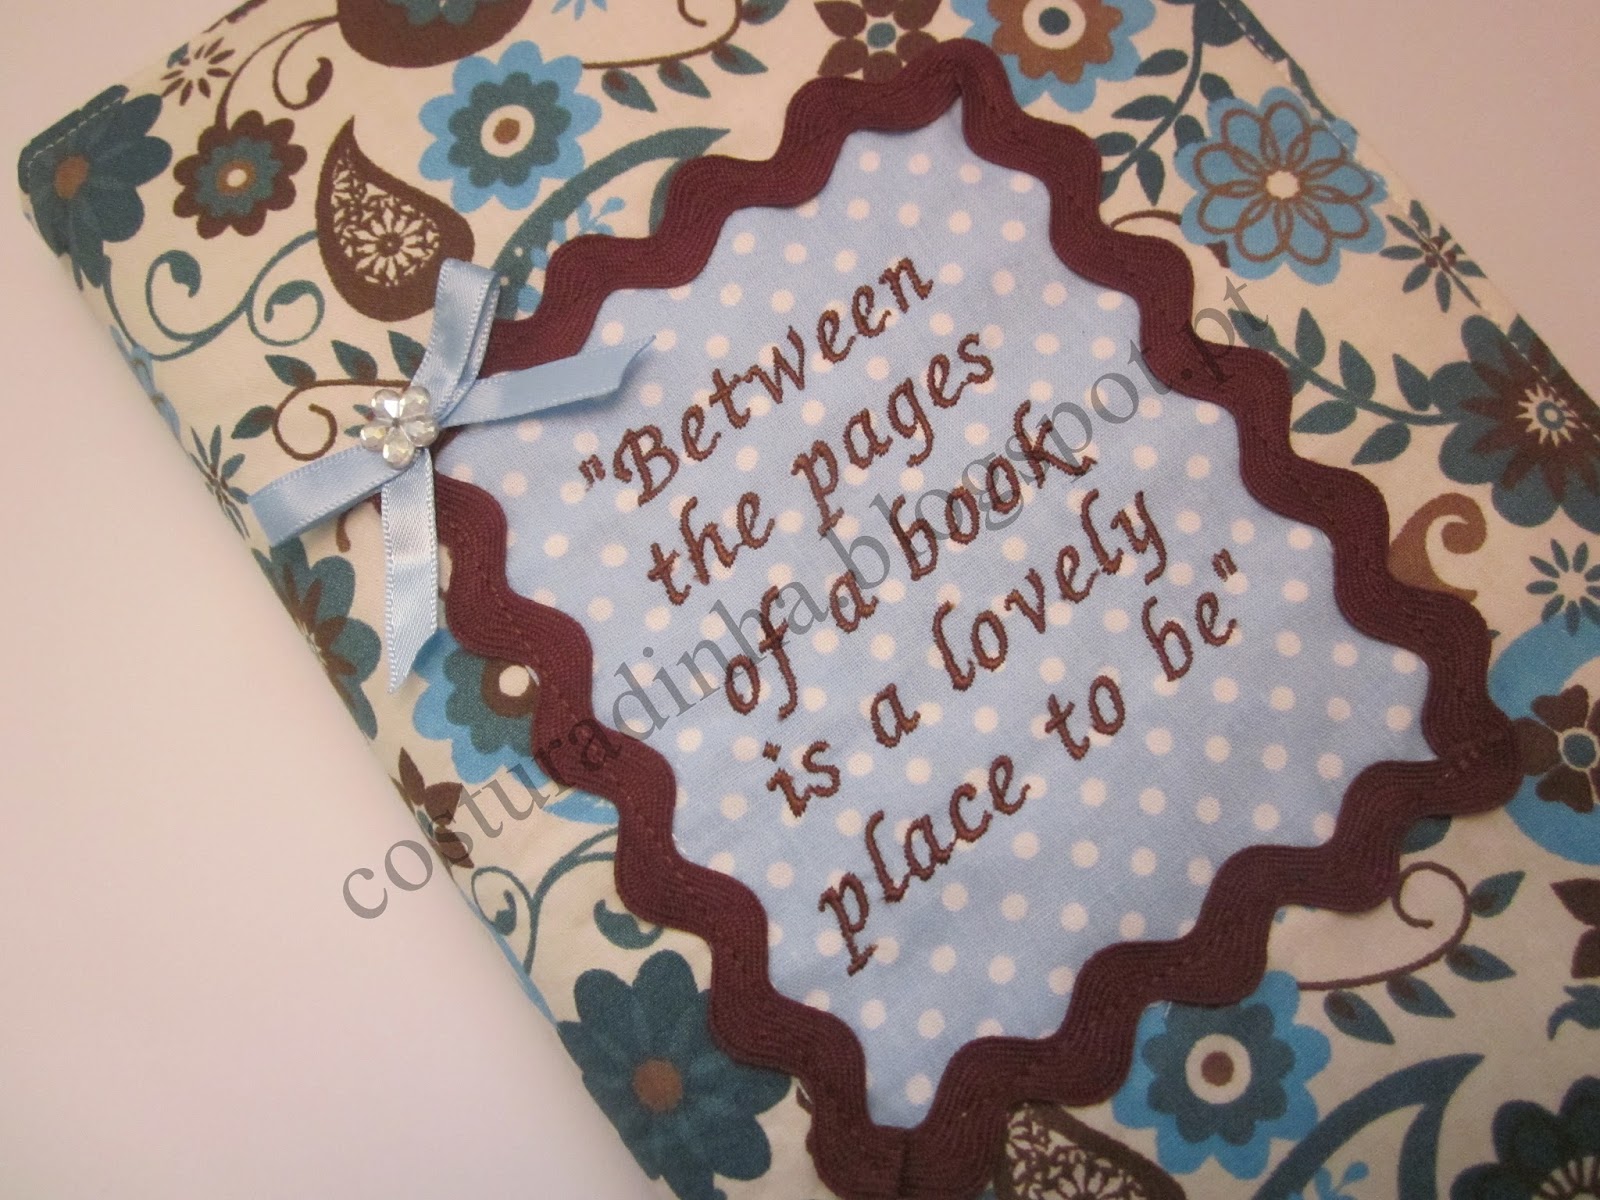 "Between
the pages
of a book
is a lovely
place to be"
costuradinha.blogspot.pt